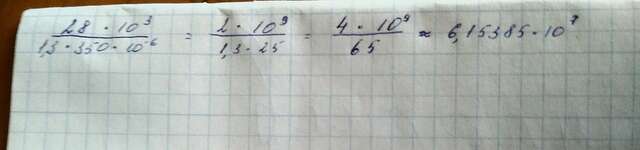 28 · 10³ / 1,3 · 350 · 10⁻⁶ = 2 · 10⁹ / 1,3 · 25 = 4 · 10⁹ / 65 ≈ 6,15385 · 10⁷